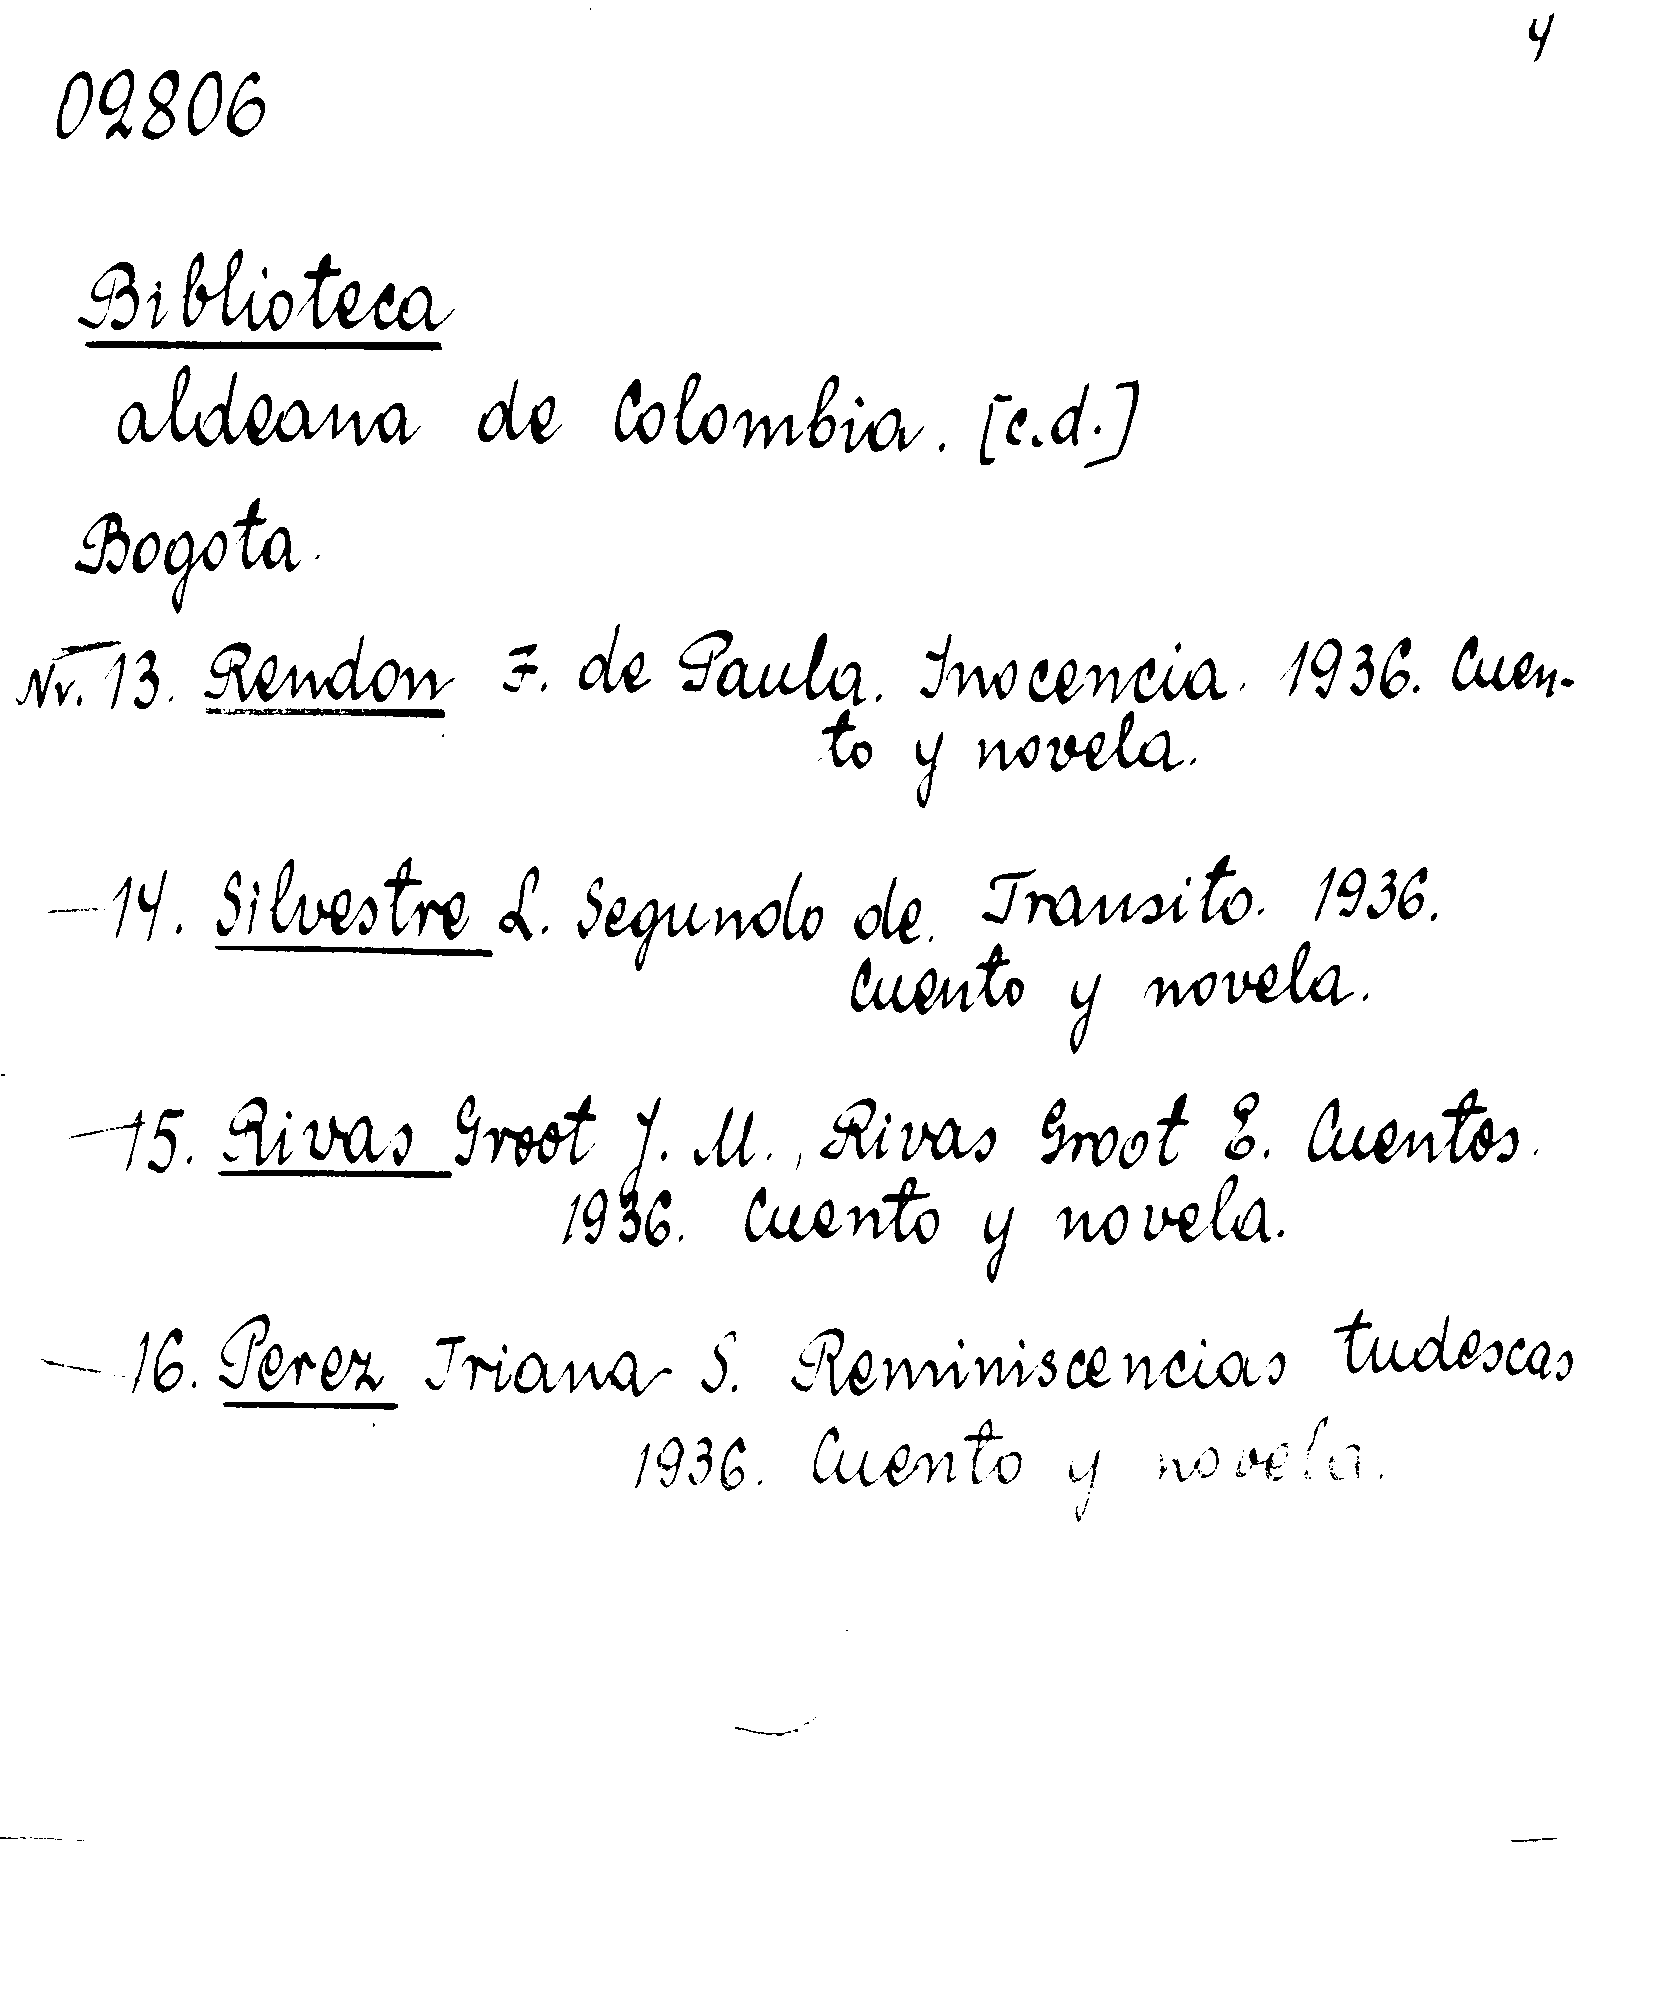 4
02806
Biblioteca
aldeana de Colombia. [c.d.]
Bogota.
Nr. 13. Rendon F. de Paula. Inocencia. 1936. Cuen-
to y novela.
— 14. Silvestre L. Segundo de. Transito. 1936.
Cuento y novela.
— 15. Rivas Groot J. M., Rivas Groot E. Cuentos.
1936. Cuento y novela.
— 16. Perez Triana S. Reminiscencias tudescas
1936. Cuento y novela.